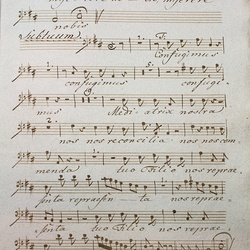 nobis
Subtuum. T:
Confugimus
confugimus confugi-
mus Mediatrix nostra
nos nos reconcilia nos nos com-
menda tuo Filio nos reprae-
senta repraesenta nos reprae-
senta tuo Filio nos reprae-